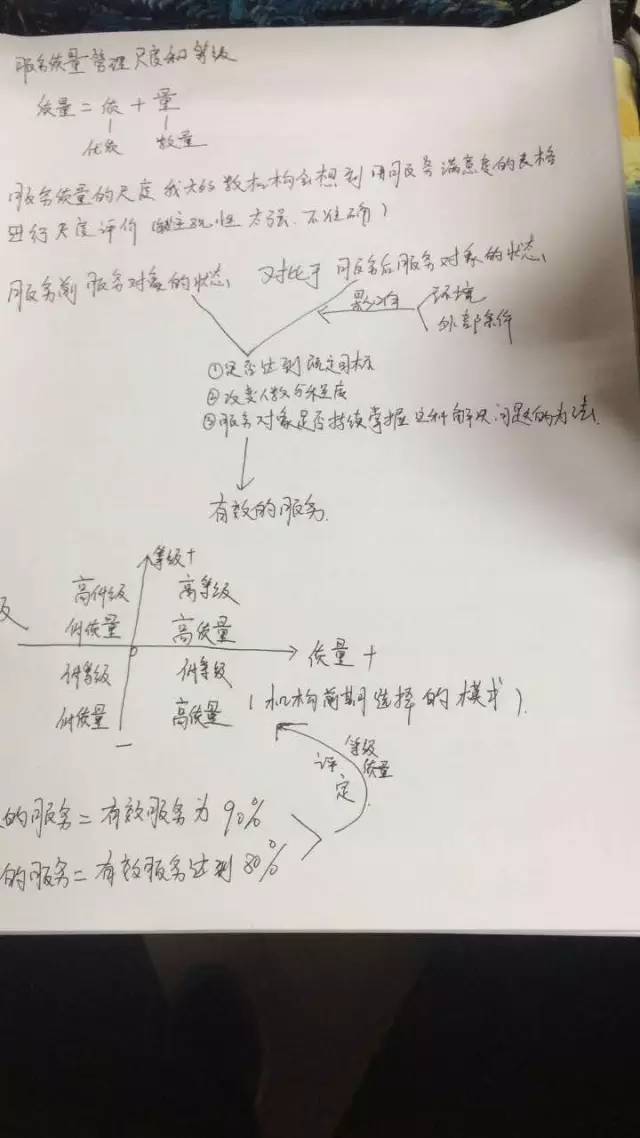 服务质量管理尺度和等级
质量 = 质 + 量
优劣 数量
服务质量的尺度 我大的数机构会想到 用服务满意度的表格
进行尺度评价（主观性太强.不准确）
服务前服务对象的状态 对比于 服务后服务对象的状态
影响 环境
外部条件
①是否达到既定目标
②改变人数与程度
③服务对象是否持续掌握这种解决问题的方法.
有效的服务.
等级+
高等级 高等级
低质量 高质量
级
质量 +
低等级 低等级
低质量 高质量
（机构前期选择的模式）.
-
等级
质量
评定
的服务 = 有效服务为 90%
的服务 = 有效服务达到80%